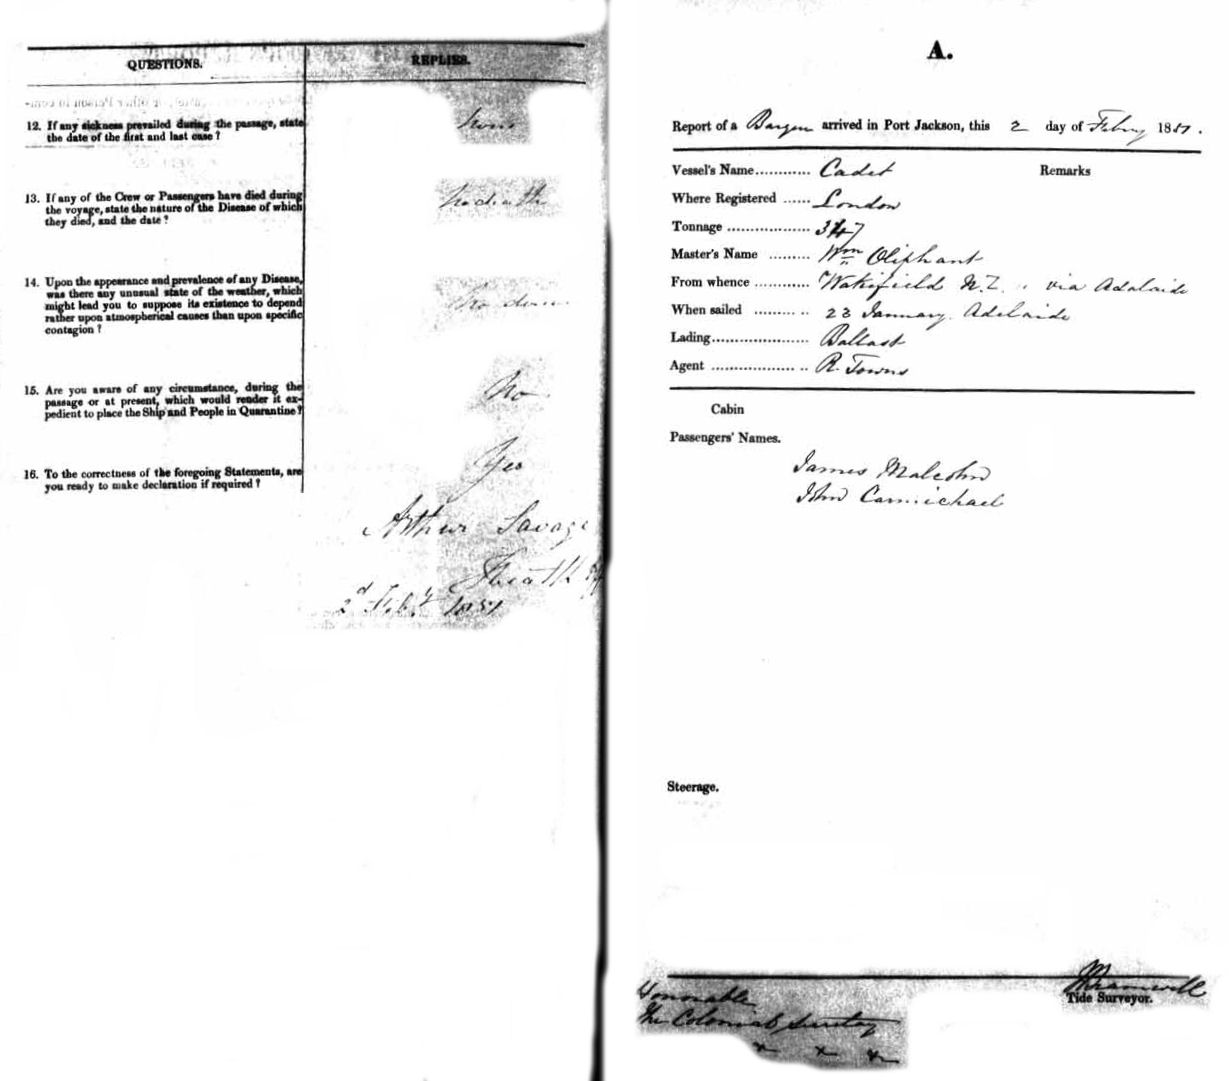 QUESTIONS.
REPLIES.
12. If any sickness prevailed during the passage, state
the date of the first and last case?
None
13. If any of the Crew or Passengers have died during
the voyage, state the nature of the Disease of which
they died, and the date?
No death
14. Upon the appearance and prevalence of any Disease,
was there any unusual state of the weather, which
might lead you to suppose its existence to depend
rather upon atmospherical causes than upon specific
contagion?
15. Are you aware of any circumstance, during the
passage or at present, which would render it ex-
pedient to place the Ship and People in Quarantine?
No
16. To the correctness of the foregoing Statements, are
you ready to make declaration if required?
Yes
Arthur Savage
2d Feby 1851
A.
Report of a Barque arrived in Port Jackson, this 2 day of Febry 1851.
Vessel's Name............ Cadet Remarks
Where Registered ...... London
Tonnage ................... 347
Master's Name ......... Wm Oliphant
From whence ............ Wakefield N.Z. via Adelaide
When sailed ......... .. 23 January. Adelaide
Lading..................... Ballast
Agent ................... .. R. Towns
Cabin
Passengers' Names.
James Malcolm
John Carmichael
Steerage.
Bramwell
Tide Surveyor.
Honorable
The Colonial Secretary
x x x